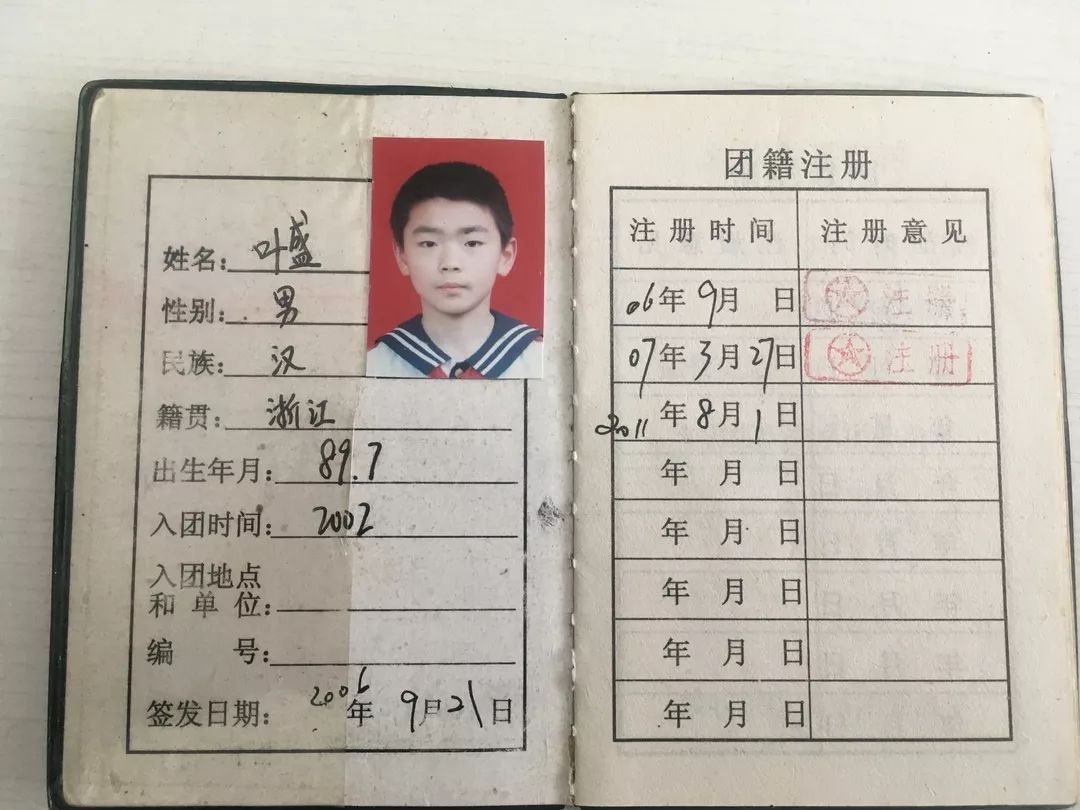 姓名：叶盛
性别：男
民族：汉
籍贯：浙江
出生年月：89.7
入团时间：2002
入团地点
和单位：
编 号：
签发日期：2006年9月21日
团籍注册
注册时间 注册意见
06年9月 日 注册
07年3月27日 注册
2011年8月1日
年 月 日
年 月 日
年 月 日
年 月 日
年 月 日